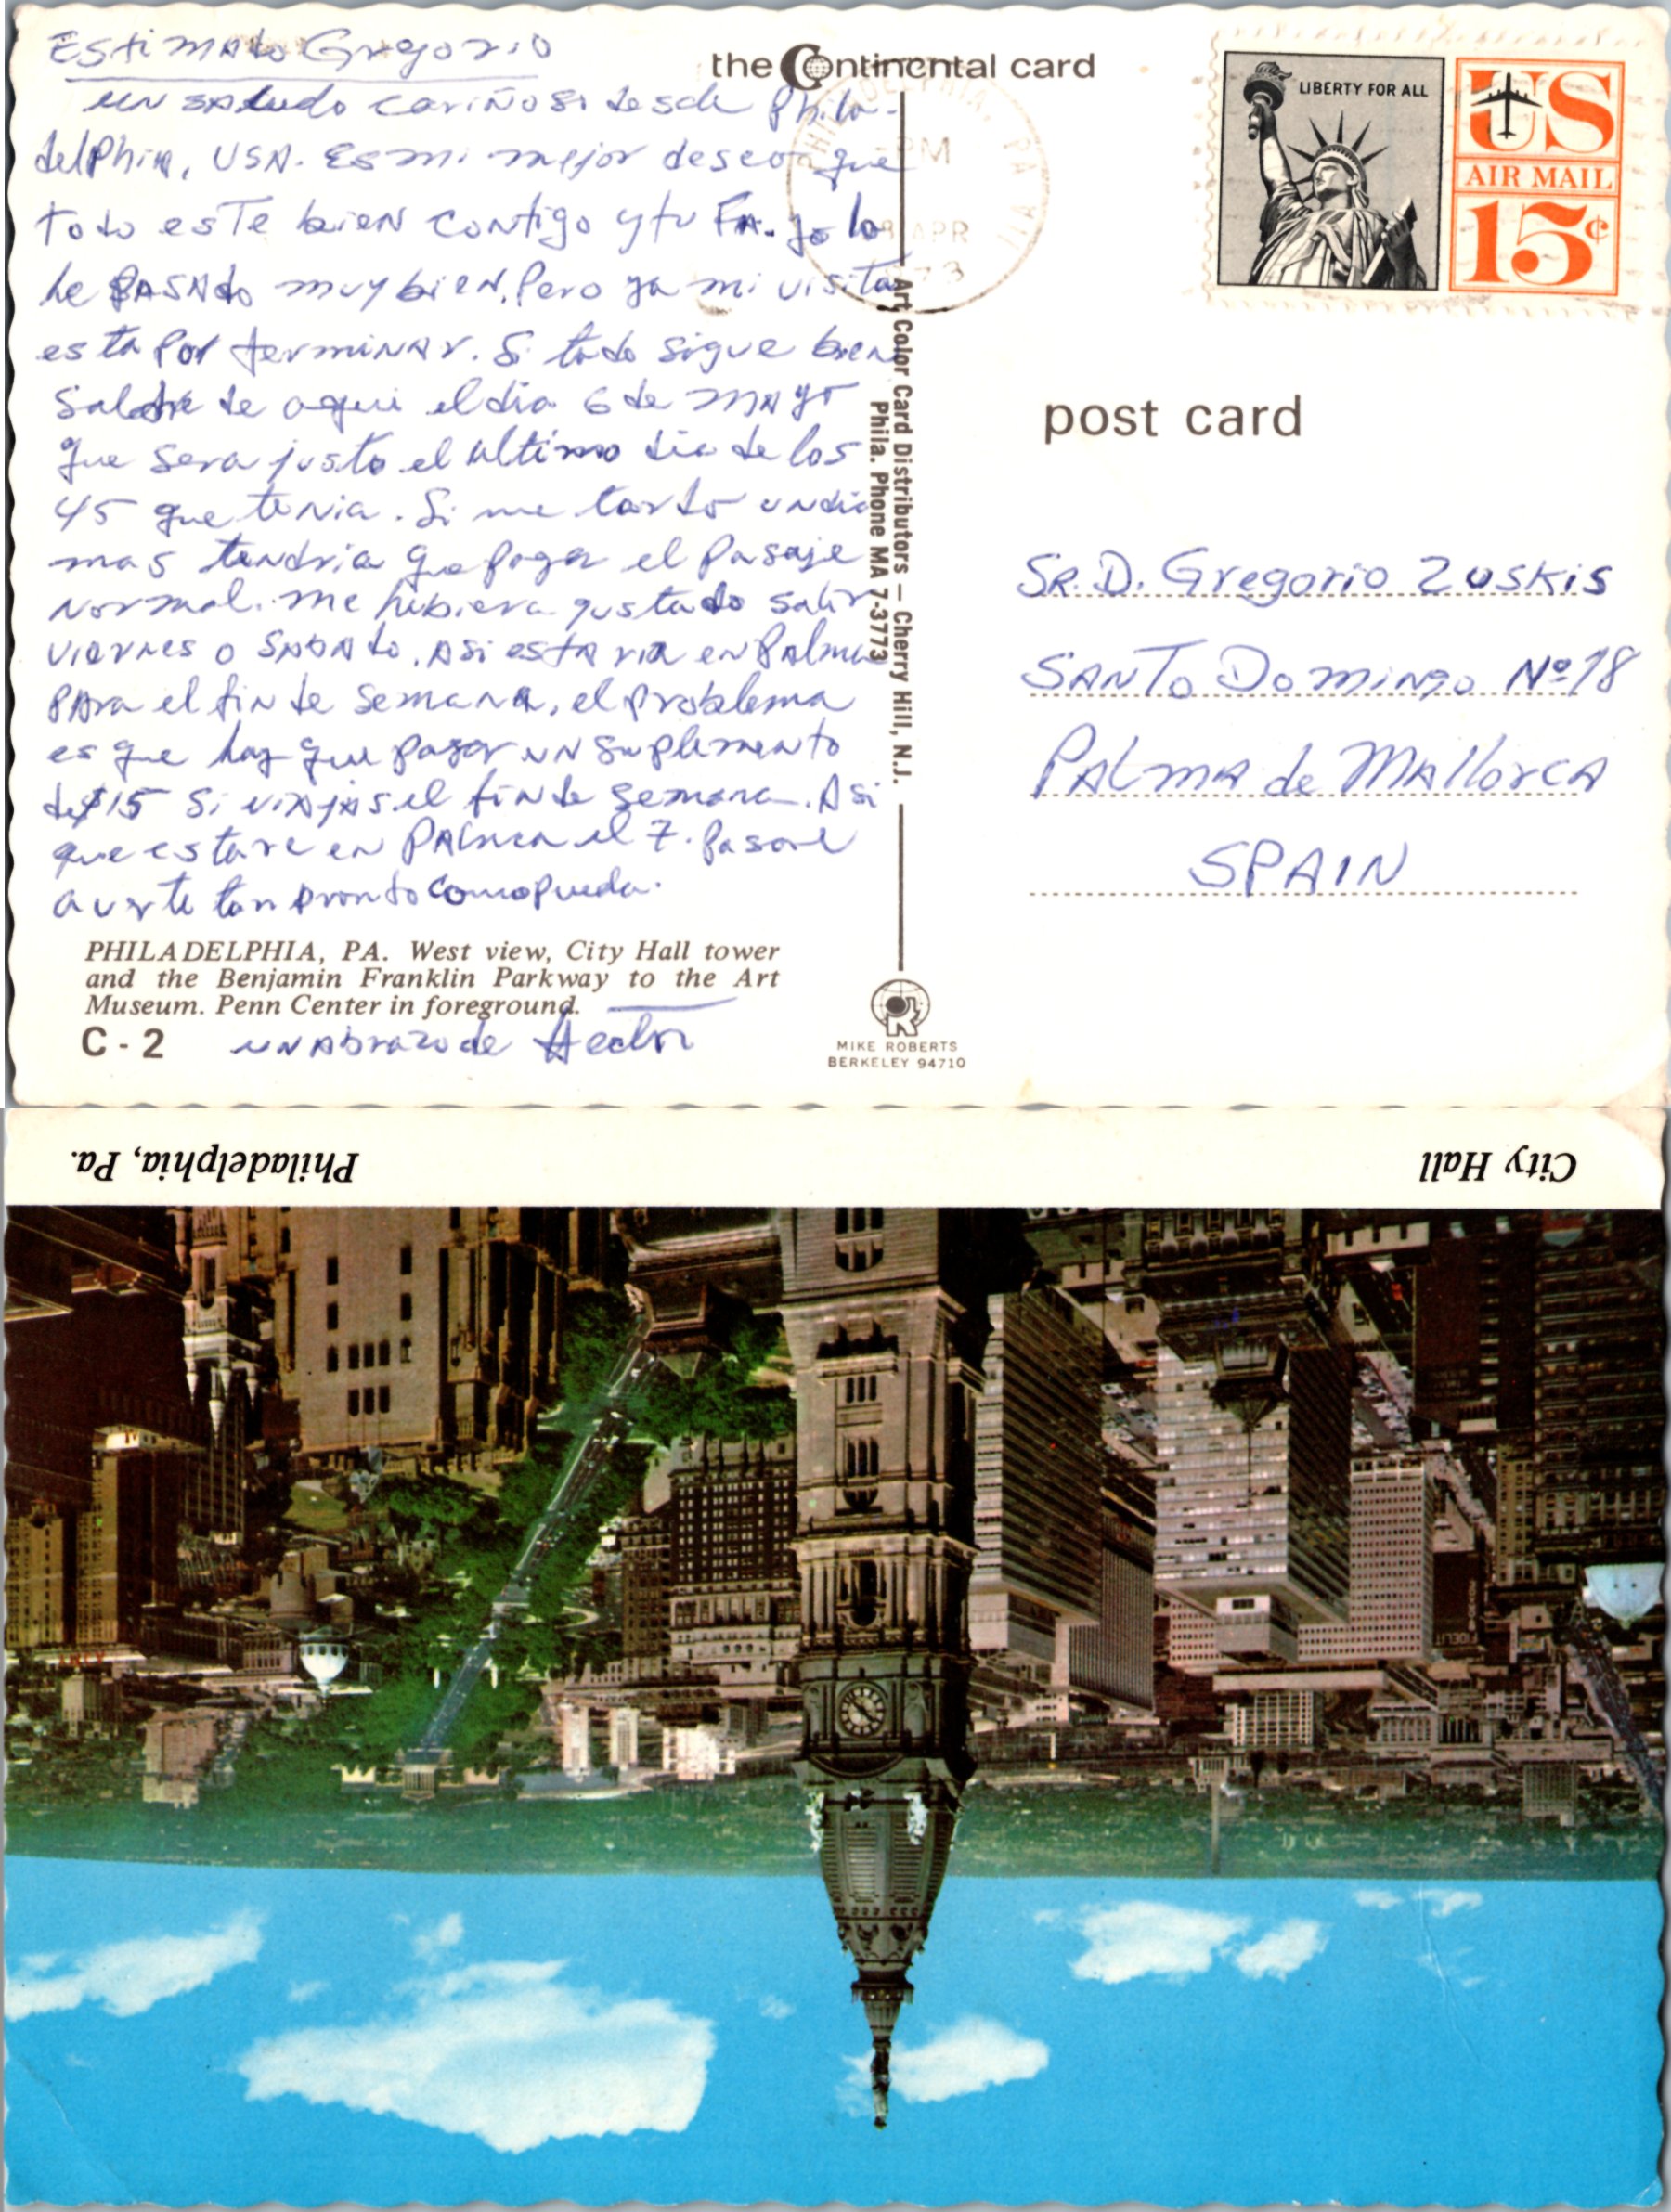 Estimado Gregorio
un saludo cariñoso desde Phila-
delphia, USA. Es mi mejor deseo que
todo este bien contigo y tu FA. yo lo
he PASAdo muy bien, Pero ya mi visita
esta Por terminar. Si todo sigue bien
Saldre de aqui el dia 6 de mayo
que sera justo el ultimo dia de los
45 que tenia. Si me tardo un dia
mas tendria que pagar el Pasaje
Normal. me hubiera gustado salir
viernes o SABADO. Asi estaria en Palma
PARA el fin de semana, el problema
es que hay que pagar un suplemento
de $15 si viajas el fin de semana. Asi
que estare en PAlma el 7. Pasare
a verte tan pronto como pueda.
PHILADELPHIA, PA. West view, City Hall tower
and the Benjamin Franklin Parkway to the Art
Museum. Penn Center in foreground.
C - 2
un Abrazo de Hector
the Continental card
Art Color Card Distributors — Cherry Hill, N.J.
Phila. Phone MA 7-3773
MIKE ROBERTS
BERKELEY 94710
PHILADELPHIA, PA
PM
APR
LIBERTY FOR ALL
US
AIR MAIL
15¢
post card
SR. D. Gregorio Zuskis
SANTO DOMINGO Nº 18
PALMA de MAllorca
SPAIN
City Hall
Philadelphia, Pa.